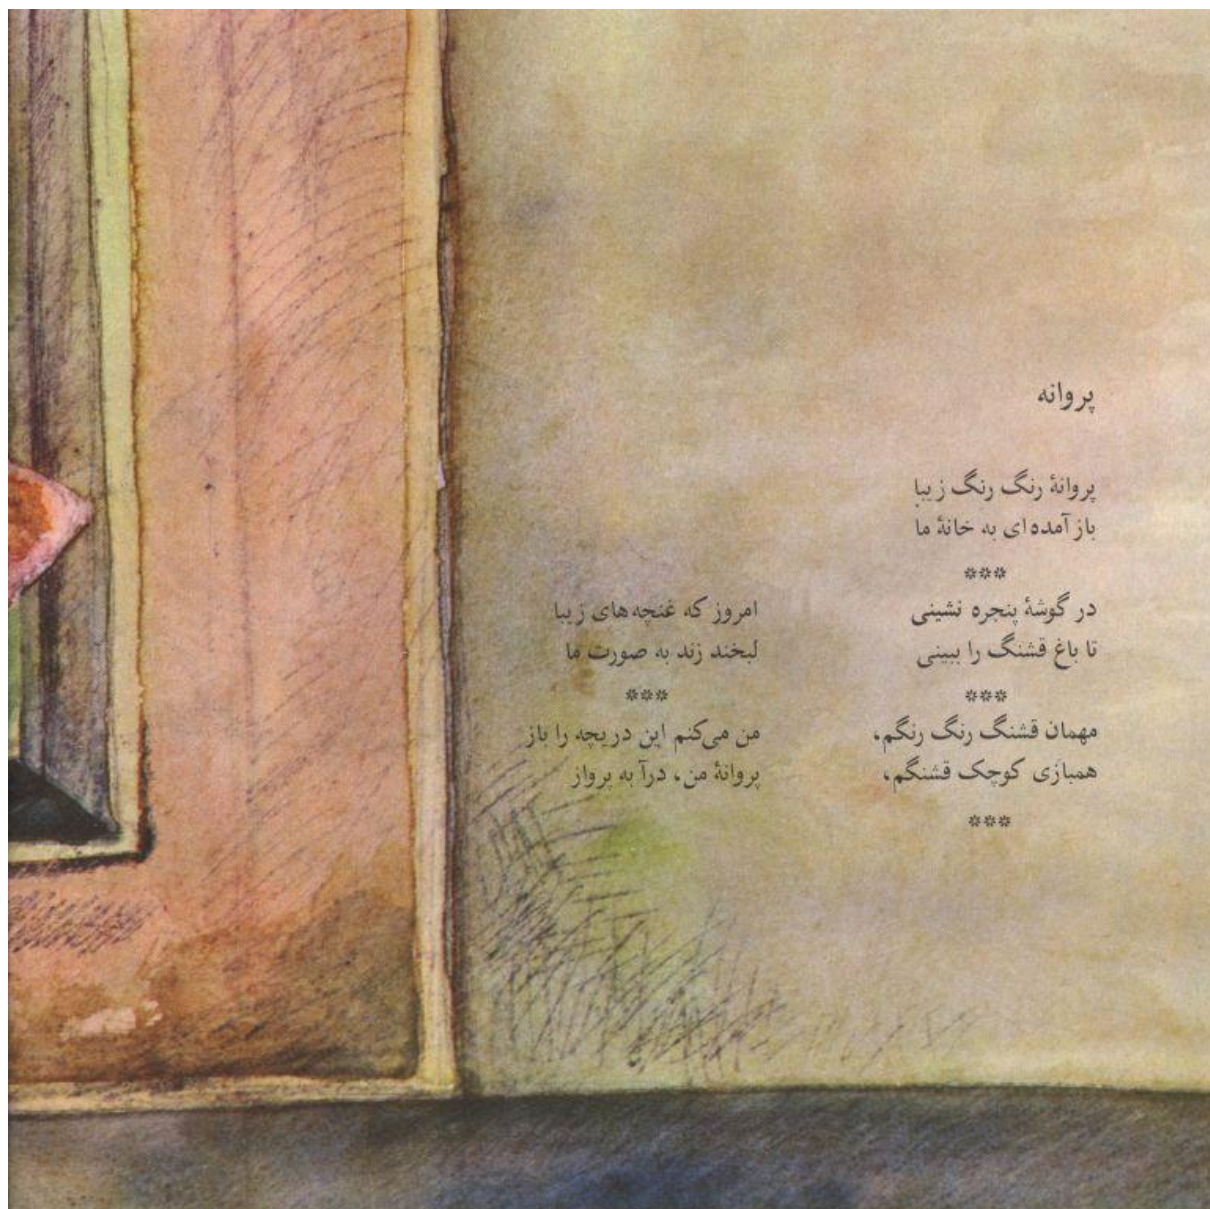 پروانه
پروانهٔ رنگ رنگ زیبا
باز آمده‌ای به خانهٔ ما
***
در گوشهٔ پنجره نشینی
تا باغ قشنگ را ببینی
***
مهمان قشنگ رنگ رنگم،
همبازی کوچک قشنگم،
***
امروز که غنچه‌های زیبا
لبخند زند به صورت ما
***
من می‌کنم این دریچه را باز
پروانهٔ من، درآ به پرواز